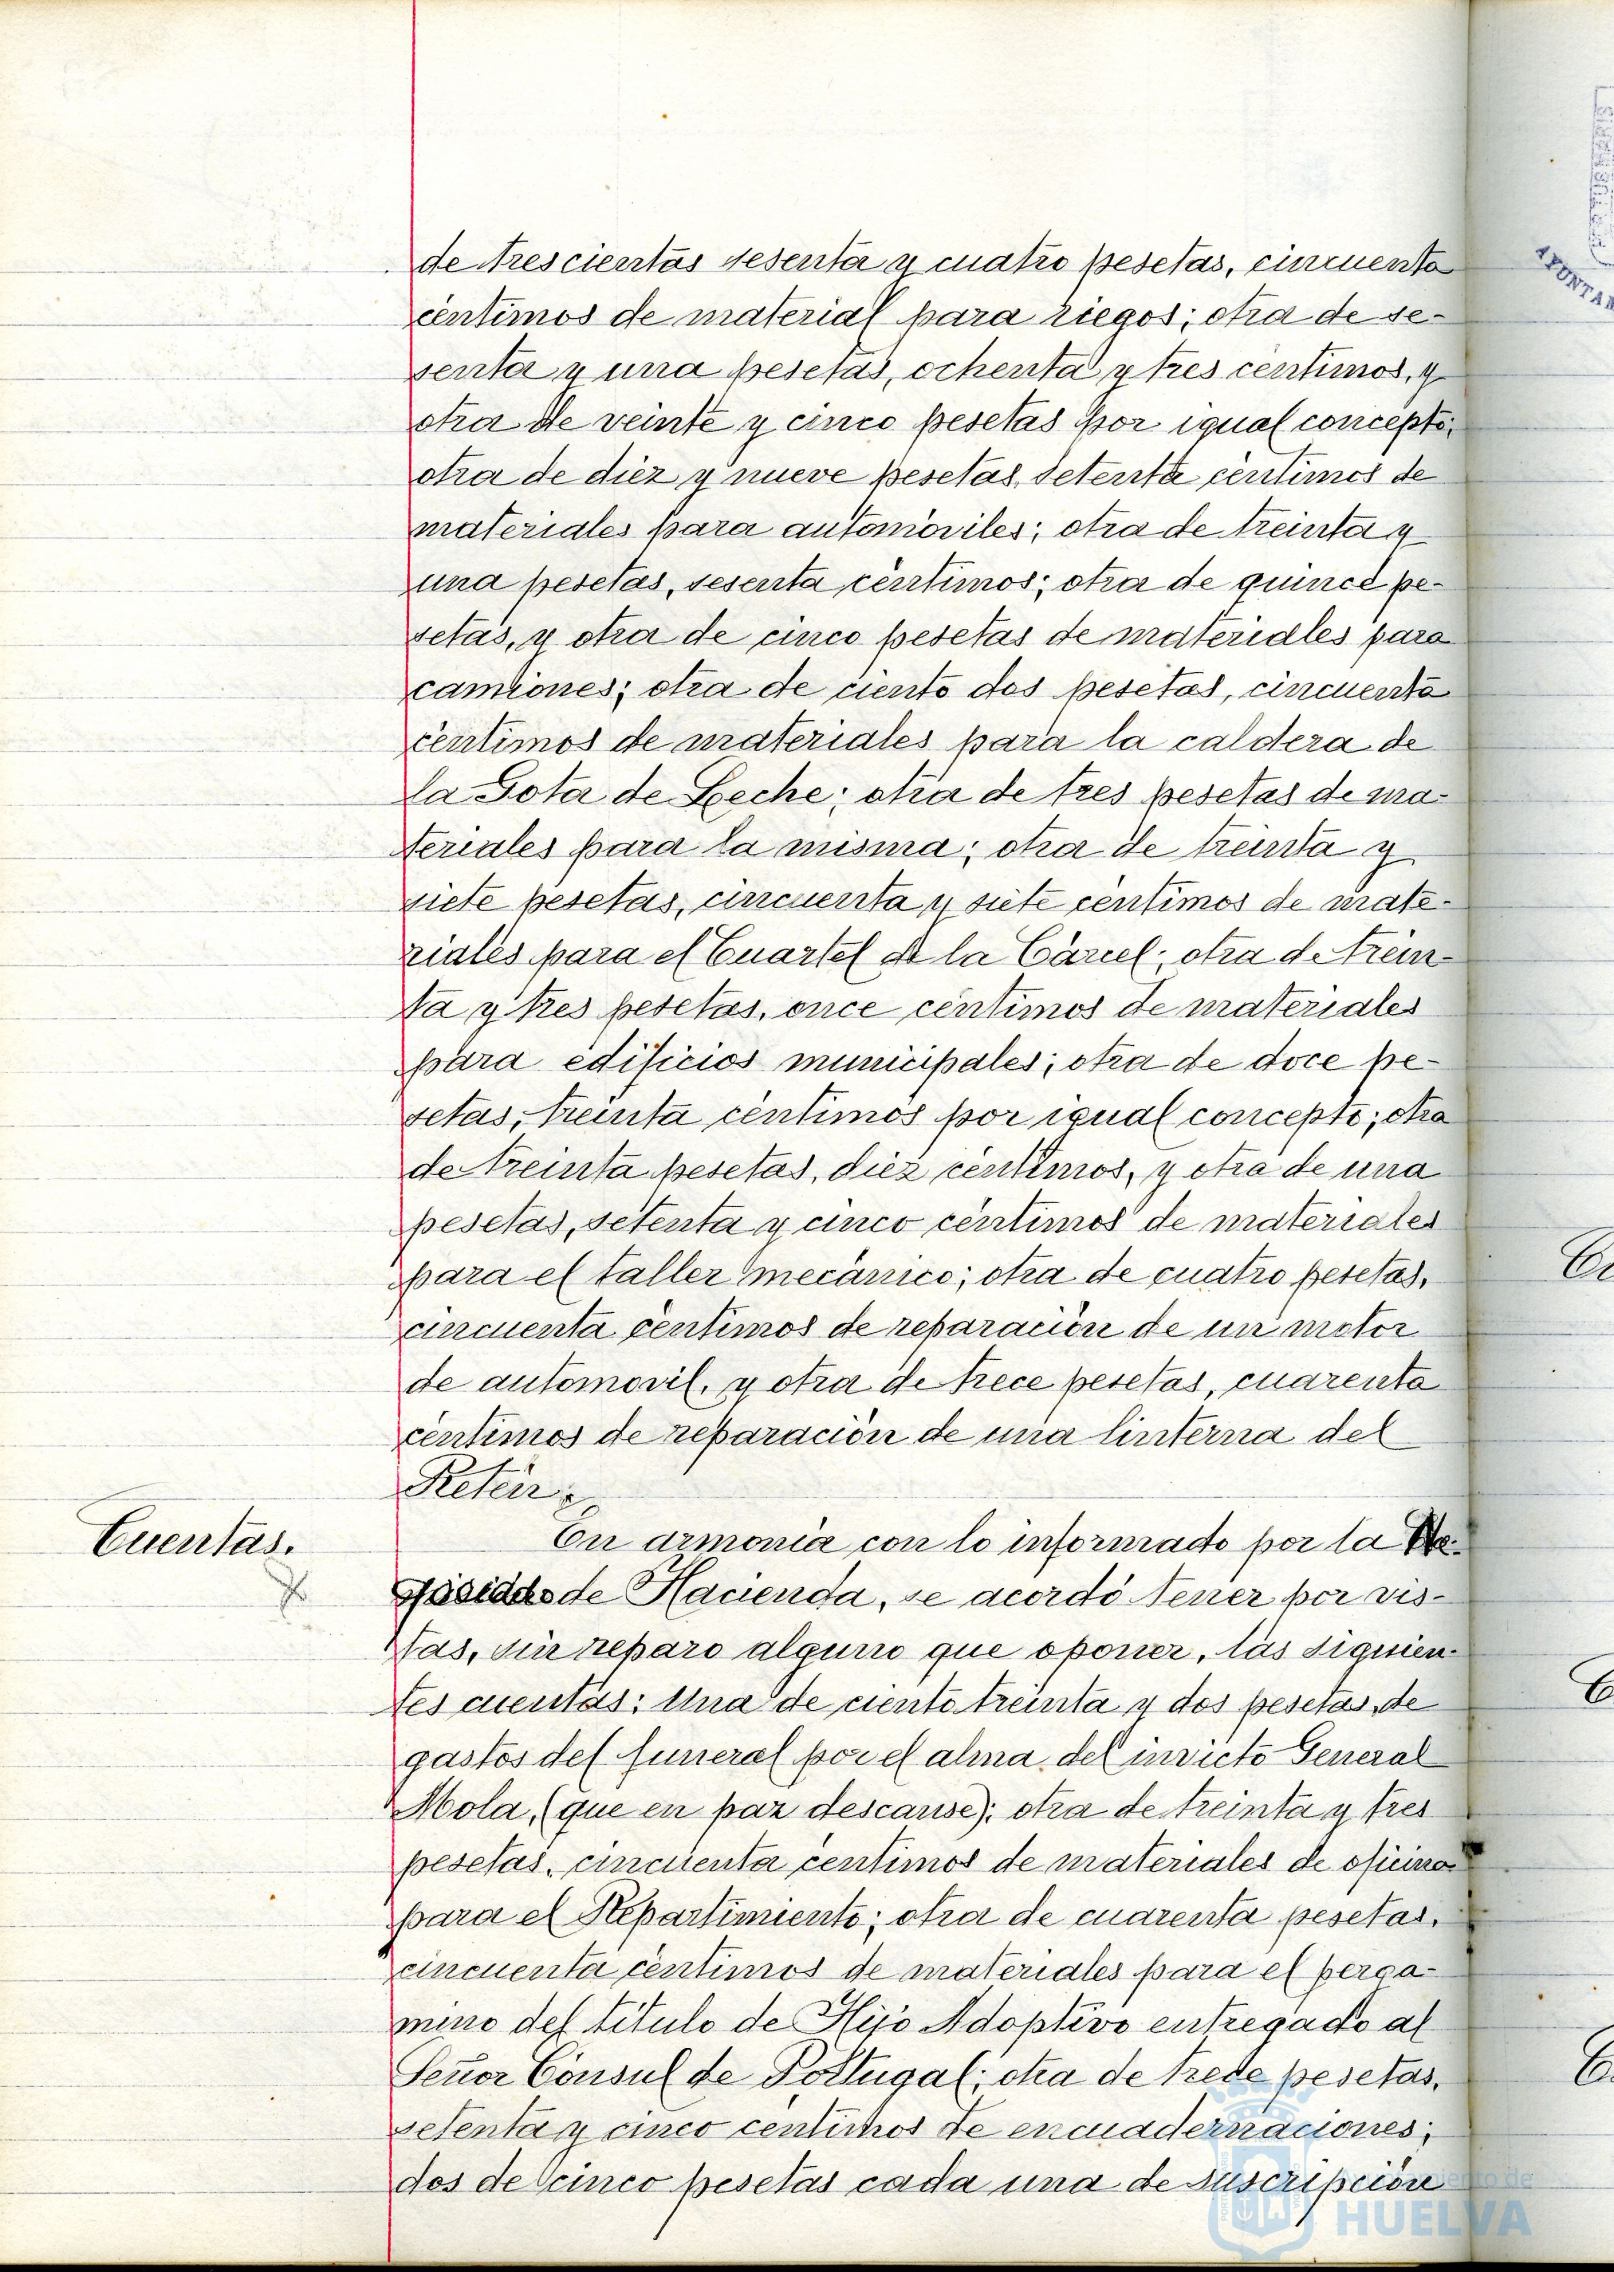 de trescientas sesenta y cuatro pesetas, cincuenta
céntimos de material para riegos; otra de se-
senta y una pesetas, ochenta y tres centimos, y
otra de veinte y cinco pesetas por igual concepto;
otra de diez y nueve pesetas, setenta centimos de
materiales para automóviles; otra de treinta y
una pesetas, sesenta céntimos; otra de quince pe-
setas, y otra de cinco pesetas de materiales para
camiones; otra de ciento dos pesetas, cincuenta
céntimos de materiales para la caldera de
la Gota de Leche; otra de tres pesetas de ma-
teriales para la misma; otra de treinta y
siete pesetas, cincuenta y siete centimos de mate-
riales para el Cuartel de la Cárcel; otra de trein-
ta y tres pesetas, once céntimos de materiales
para edificios municipales; otra de doce pe-
setas, treinta céntimos por igual concepto; otra
de treinta pesetas, diez centimos, y otra de una
pesetas, setenta y cinco céntimos de materiales
para el taller mecánico; otra de cuatro pesetas,
cincuenta céntimos de reparación de un motor
de automovil, y otra de trece pesetas, cuarenta
centimos de reparación de una linterna del
Retén.
Cuentas.
En armonía con lo informado por la
de Hacienda, se acordó tener por vis-
tas, sin reparo alguno que oponer, las siguien-
tes cuentas: Una de ciento treinta y dos pesetas, de
gastos del funeral por el alma del invicto General
Mola, (que en paz descanse); otra de treinta y tres
pesetas, cincuenta céntimos de materiales de oficina
para el Repartimiento; otra de cuarenta pesetas,
cincuenta céntimos de materiales para el perga-
mino del título de Hijo Adoptivo entregado al
Señor Cónsul de Portugal; otra de trece pesetas,
setenta y cinco centimos de encuadernaciones;
dos de cinco pesetas cada una de suscripción
HUELVA